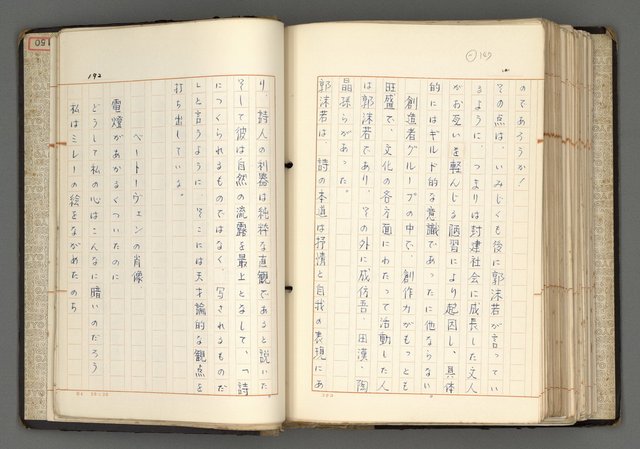 のであろうか！
その点は、いみじくも後に郭沫若が言ってい
るように、つまりは封建社会に成長した文人
がお互いを軽んじる陋習により起因し、具体
的にはギルド的な意識であったに他ならない
創造者グループの中で、創作力がもっとも
旺盛で、文化の各方面にわたって活動した人
は郭沫若であり、その外に成仿吾、田漢、陶
晶孫らがあった。
郭沫若は、詩の本道は抒情と自我の表現にあ
147
り、詩人の利器は純粋な直観であると説いた
そして彼は自然の流露を最上となして、「詩
につくられるものではなく、写されるものだ
」と言うように、そこには天才論的な観点を
打ち出している。
ベートーヴェンの肖像
電燈があかるくついたのに
どうして私の心はこんなに暗いのだろう
私はミレーの絵をながめたのち
192